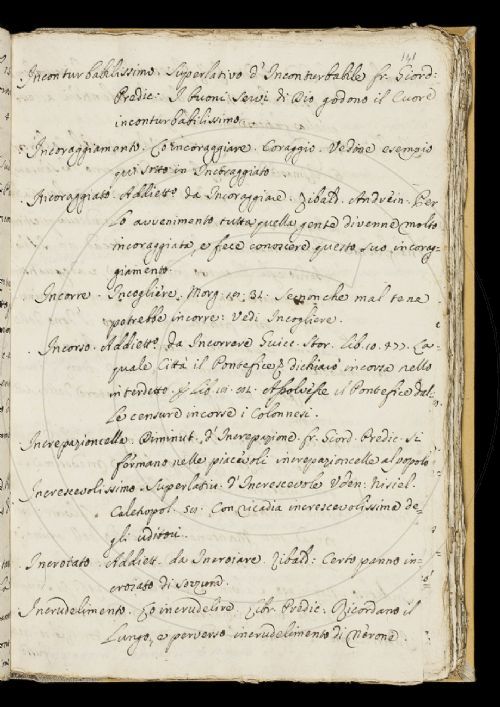 141
Inconturbabilissimo. Superlativo d'Inconturbabile fr. Giord:
Predic: I buoni servi di Dio godono il Cuore
inconturbabilissimo.
Incoraggiamento. Lo incoraggiare. Coraggio. Vedine esempio
qui sotto in Incoraggiato
Incoraggiato. Addiett.º da Incoraggiare. Zibald. Andrein. Per
lo avvenimento tutta quella gente divenne molto
incoraggiata, e fece conoscere questo suo incorag=
giamento.
Incorre. Incogliere. Morg. 31. Se non che mal te ne
potrebbe incorre: Vedi Incogliere.
Incorso. Addiett.º da Incorrere Guicc. Stor. lib. 10. 477. La
quale Città il Pontefice dichiarò incorsa nello
interdetto lib. Assolvesse il Pontefice dal=
le censure incorse i Colonnesi.
Increpazioncella. Diminut. d'Increpazione. fr. Giord. Predic. Si
formano nelle piacevoli increpazioncelle al popolo
Increscevolissimo. Superlativ. d'Increscevole Uden. Nisiel.
Con vicadia increscevolissima de=
gli uditori.
Incrojato. Addiett. da Incrojare. Zibald: Certo panno in=
crojato di sozzura.
Incrudelimento. Lo incrudelire. Libr. Predic. Ricordano il
lungo, e perverso incrudelimento di Nerone.